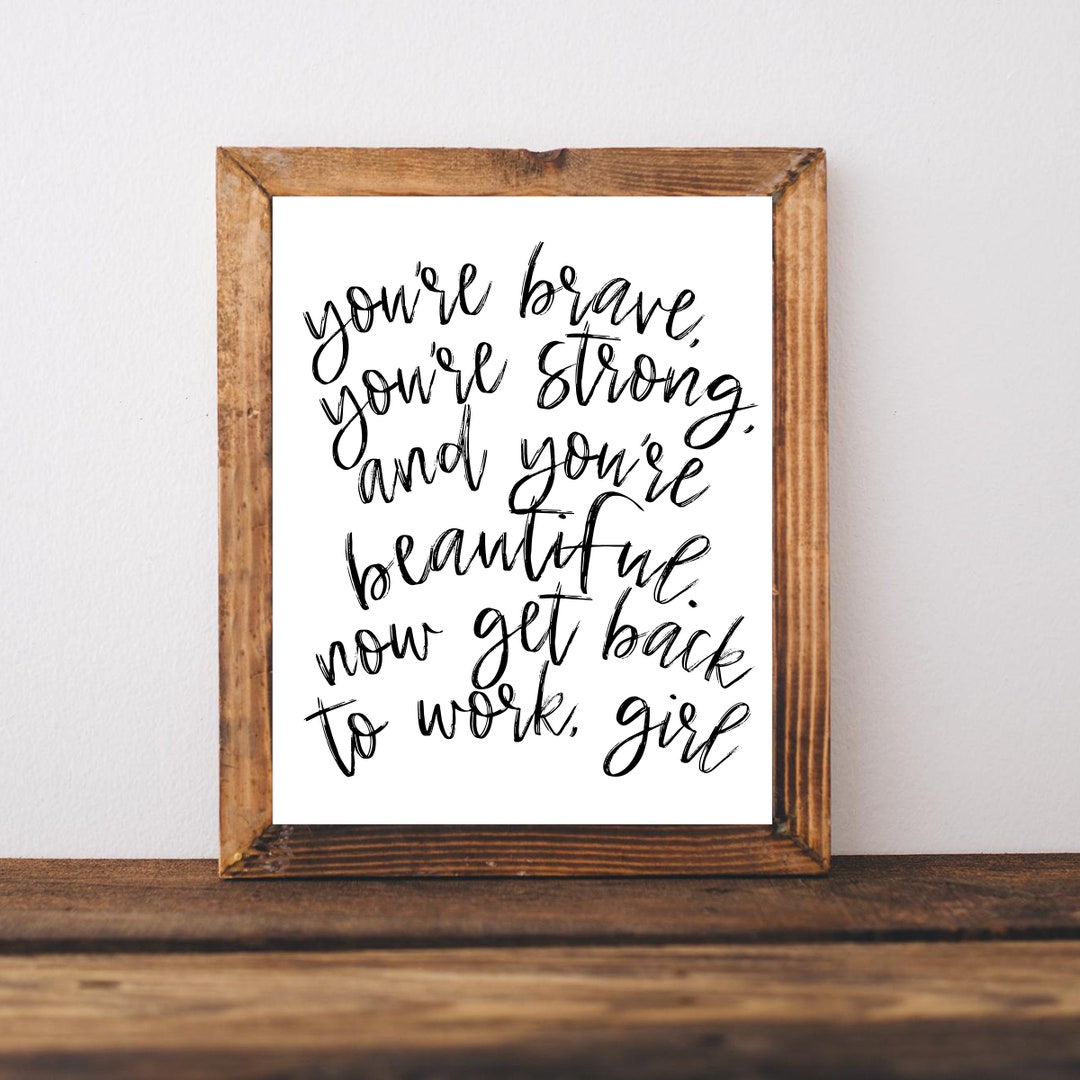 you're brave,
you're strong,
and you're
beautiful.
now get back
to work, girl